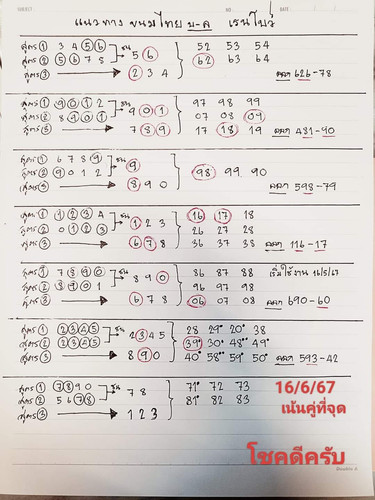 SUBJECT NO. DATE
แนวทาง ขนมไทย บ-ล เรนโบว์
สูตร ① 3 4 ⑤ ⑥ ชน 5 ⑥ 52 53 54
สูตร ② ⑤ ⑥ 7 8 62 63 64
สูตร ③ ② 3 4 ออก 626-78
สูตร ① 9 0 1 2 ชน 9 0 1 97 98 99
สูตร ② 8 9 0 1 07 08 09
สูตร ③ 7 8 9 17 18 19 ออก 481-90
สูตร ① 6 7 8 9 ชน 9 98 99 90
สูตร ② 9 0 1 2
สูตร ③ 8 9 0 ออก 598-79
สูตร ① 1 2 3 4 ชน 1 2 3 16 17 18
สูตร ② 0 1 2 3 26 27 28
สูตร ③ 6 7 8 36 37 38 ออก 116-17
สูตร ① 7 8 9 0 ชน 8 9 0 86 87 88 เริ่มใช้งาน 16/5/67
สูตร ② 8 9 0 1 96 97 98
สูตร ③ 6 7 8 06 07 08 ออก 690-60
สูตร ① 2 3 4 5 ชน 2 3 4 5 28 29 20 38
สูตร ② 2 3 4 5 39 30 48 49
สูตร ③ 8 9 0 40 58 59 50 ออก 593-42
สูตร ① 7 8 9 0 ชน 7 8 71 72 73
สูตร ② 5 6 7 8 81 82 83
สูตร ③ 1 2 3
16/6/67
เน้นคู่ที่จุด
โชคดีครับ